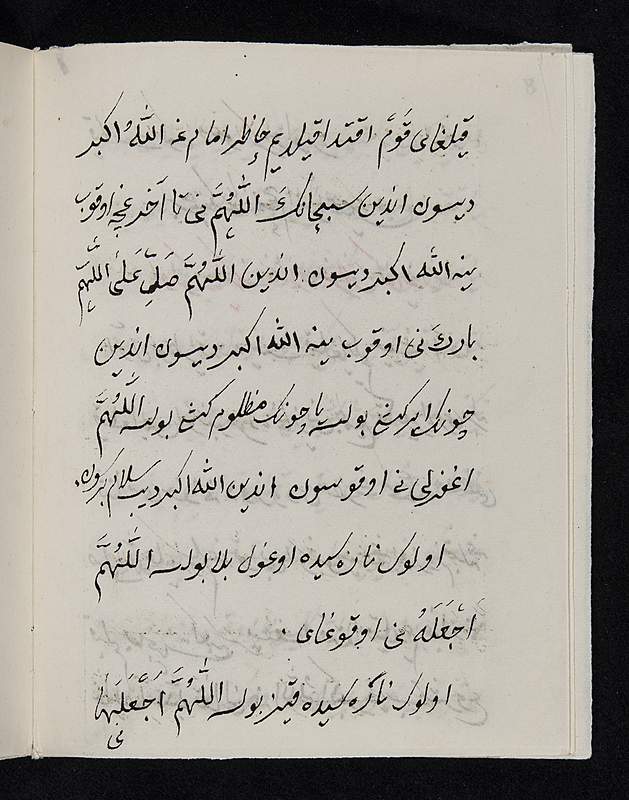 قیلغای قَوَمَّ اقتدا قیلدیم حاظر امام غه اللهُ اکبر
دیسون اندین سبحانک اَللّٰهُمَّ نی تا آخر غچه اوقوب
ینه الله اکبر دیسون اندین اللّٰهُمَّ صَلِّ عَلیٰ اللّٰهُمَّ
بارک نی اوقوب ینه الله اکبر دیسون اندین
چونک ایر کشی بولسه یا چونک مظلوم کشی بولسه اَللّٰهُمَّ
اغفرلی نی اوقوسون اندین الله اکبر دیب سلام برسون
اولوک نازه سیده اوغول بلا بولسه اللّٰهُمَّ
اَجْعَلَهُ نی اوقوغای
اولوک نازه سیده قیز بولسه اللّٰهُمَّ اَجْعَلَهَا
نی